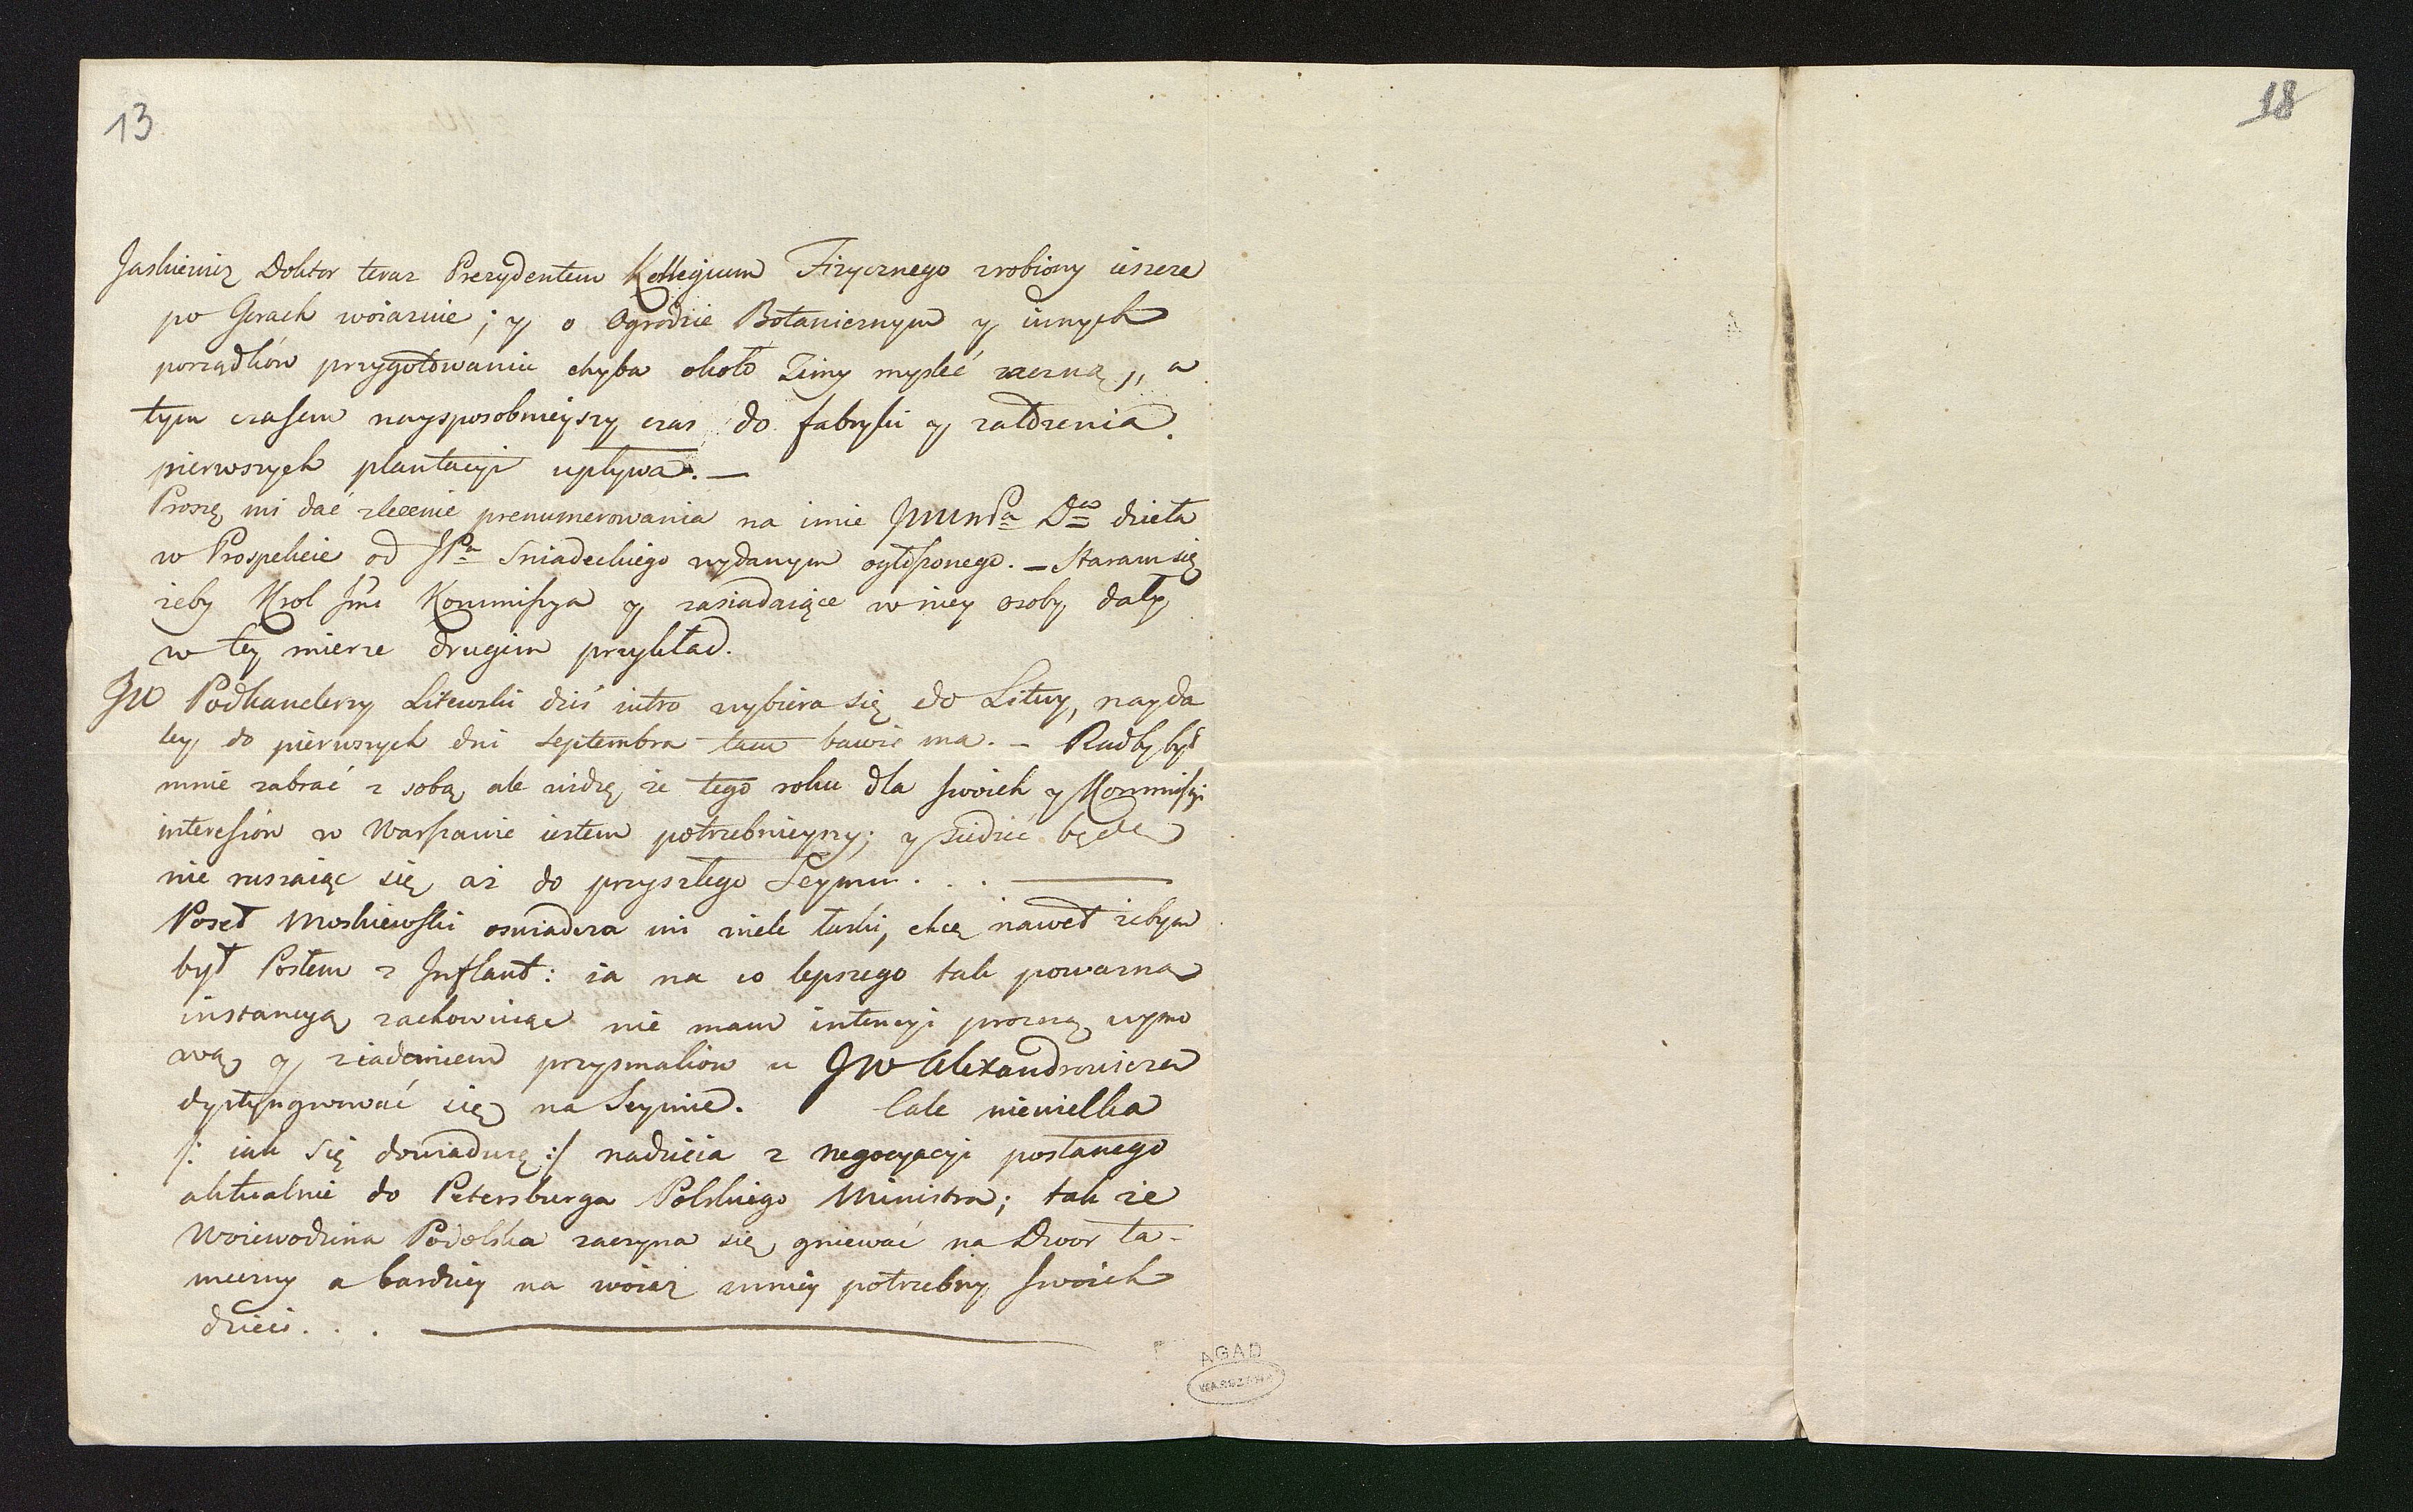 13
18
Jaskiewicz Doktor teraz Prezydentem Kollegium Fizycznego zrobiony ieszcze
po Gorach woiażuie; y o Ogrodzie Botanicznym y innych
porządków przygotowaniu chyba około Zimy myśleć zaczną,, a
tym czasem naysposobnieyszy czas do fabryki y załdzenia
pierwszych plantacyi upływa. —
Proszę mi dać zlecenie prenumerowania na imie JWWnPa Dra dzieła
w Prospekcie od JPa Sniadeckiego wydanym ogłoszonego. — Staram się
żeby Krol Jmć Kommissya y zasiadaiące w niey osoby dały
w tey mierze drugim przykład.
JW Podkanclerzy Litewski dziś iutro wybiera się do Litwy, nayda
ley do pierwszych dni Septembra tam bawić ma. — Radby był
mnie zabrać z sobą, ale widzę że tego roku dla swoich y Kommissyi
interessów w Warszawie iestem potrzebnieyszy; y siedzieć będę
nie ruszaiąc się aż do przyszłego Seymu. . . —
Poseł Moskiewski oswiadcza mi wiele łaski, chce nawet żebym
był Posłem z Inflant: ia na co lepszego tak poważną
instancyą zachowuiąc nie mam intencyi prozną wymo
wą y ziadaniem przysmaków u JW Alexandrowicza
dystyngwować się na Seymie. Cale niewielka
/: iak się dowiaduię :/ nadzieia z negocyacyi posłanego
aktualnie do Petersburga Polskiego Ministra; tak że
Woiewodzina Podolska zaczyna się gniewać na Dwor ta-
meczny a bardziey na woiaż mniey potrzebny swoich
dzieci. . . —
AGAD
WARSZAWA